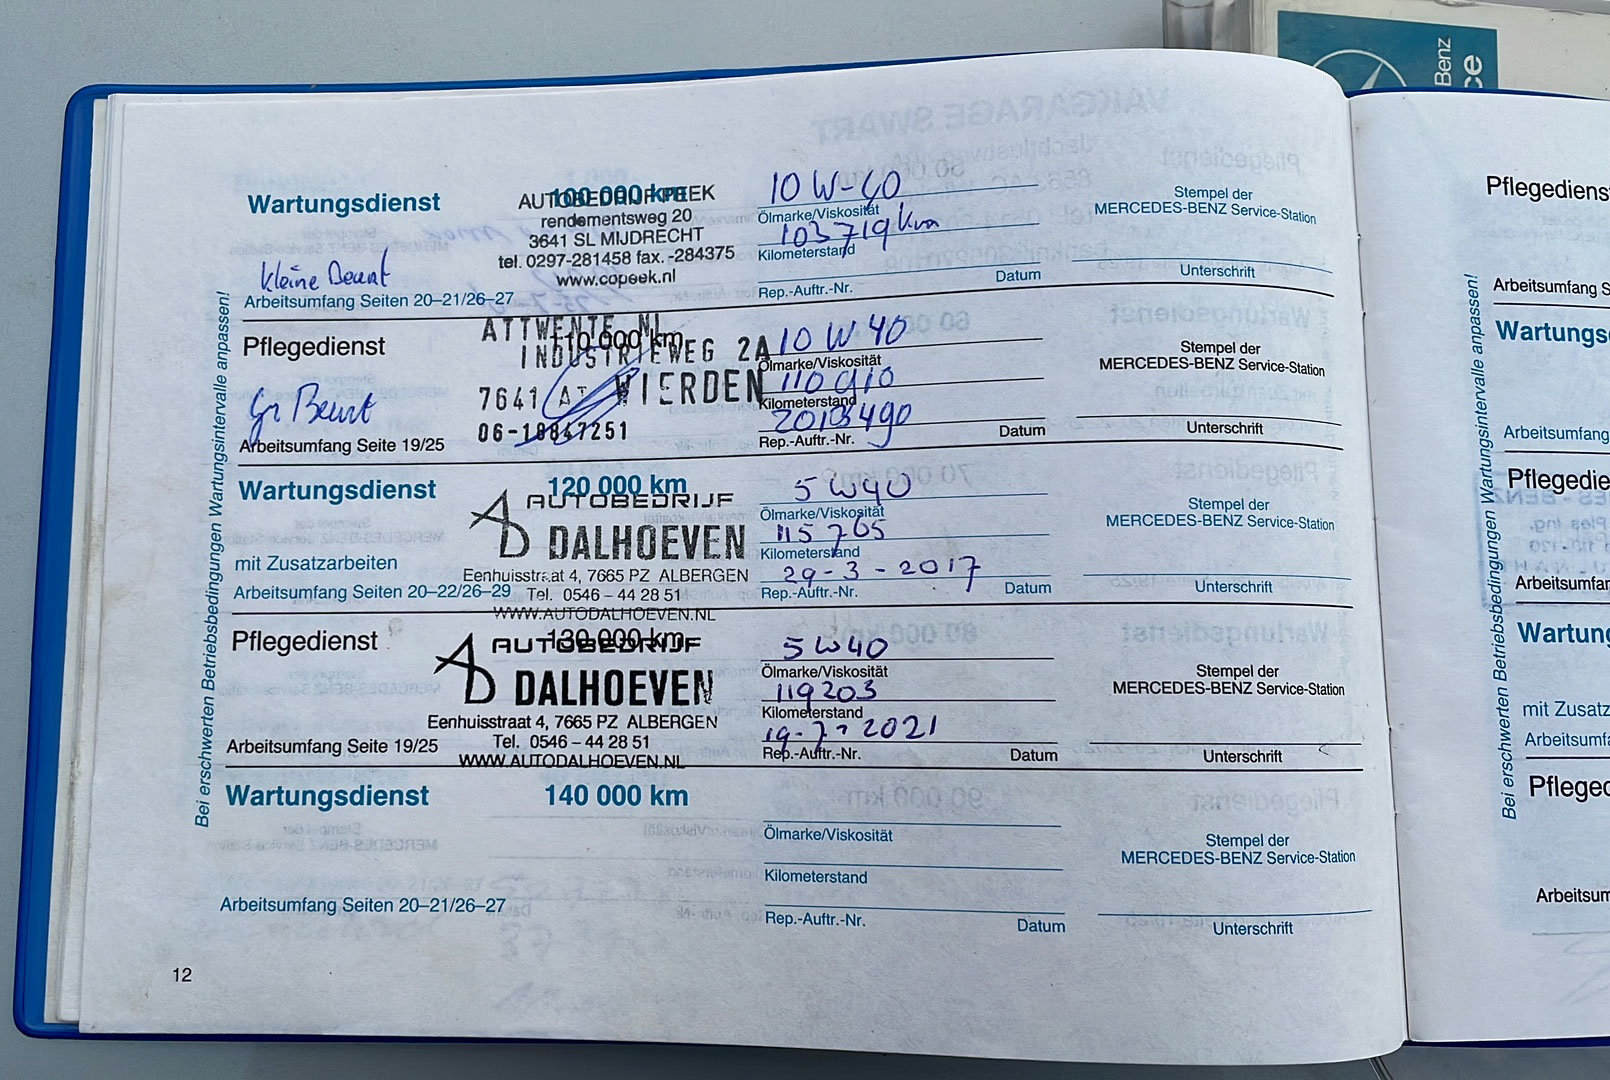 Benz
ce
Bei erschwerten Betriebsbedingungen Wartungsintervalle anpassen!
Wartungsdienst 100 000 km
AUTOBEDRIJF PEEK
rendementsweg 20
3641 SL MIJDRECHT
tel. 0297-281458 fax. -284375
www.copeek.nl
kleine Beurt
Arbeitsumfang Seiten 20–21/26–27
10 W-40
Ölmarke/Viskosität
103719 km
Kilometerstand
Rep.-Auftr.-Nr. Datum
Stempel der
MERCEDES-BENZ Service-Station
Unterschrift
Pflegedienst 110 000 km
ATTWENTE NL
INDUSTRIEWEG 2A
7641 AT WIERDEN
06-18847251
Gr Beurt
Arbeitsumfang Seite 19/25
10 W 40
Ölmarke/Viskosität
110910
Kilometerstand
Rep.-Auftr.-Nr. Datum
Stempel der
MERCEDES-BENZ Service-Station
Unterschrift
Wartungsdienst 120 000 km
AUTOBEDRIJF
AD DALHOEVEN
Eenhuisstraat 4, 7665 PZ ALBERGEN
Tel. 0546 – 44 28 51
WWW.AUTODALHOEVEN.NL
mit Zusatzarbeiten
Arbeitsumfang Seiten 20–22/26–29
5 W40
Ölmarke/Viskosität
115765
Kilometerstand
29-3-2017
Rep.-Auftr.-Nr. Datum
Stempel der
MERCEDES-BENZ Service-Station
Unterschrift
Pflegedienst 130 000 km
AUTOBEDRIJF
AD DALHOEVEN
Eenhuisstraat 4, 7665 PZ ALBERGEN
Tel. 0546 – 44 28 51
WWW.AUTODALHOEVEN.NL
Arbeitsumfang Seite 19/25
5 W40
Ölmarke/Viskosität
119203
Kilometerstand
19-7-2021
Rep.-Auftr.-Nr. Datum
Stempel der
MERCEDES-BENZ Service-Station
Unterschrift
Wartungsdienst 140 000 km
Arbeitsumfang Seiten 20–21/26–27
Ölmarke/Viskosität
Kilometerstand
Rep.-Auftr.-Nr. Datum
Stempel der
MERCEDES-BENZ Service-Station
Unterschrift
12
Bei erschwerten Betriebsbedingungen Wartungsintervalle anpassen!
Pflegediens
Arbeitsumfang S
Wartungs
Arbeitsumfang
Pflegedie
Arbeitsumfan
Wartung
mit Zusatz
Arbeitsumfa
Pflegec
Arbeitsum